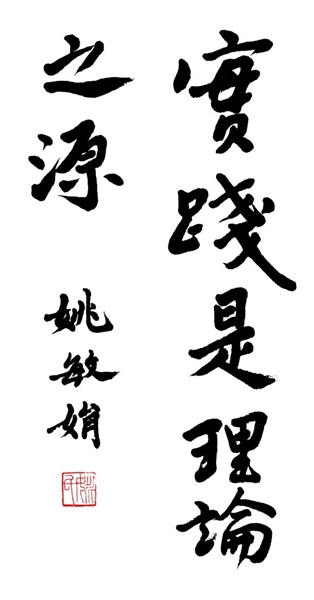 實踐是理論
之源
姚敏娟